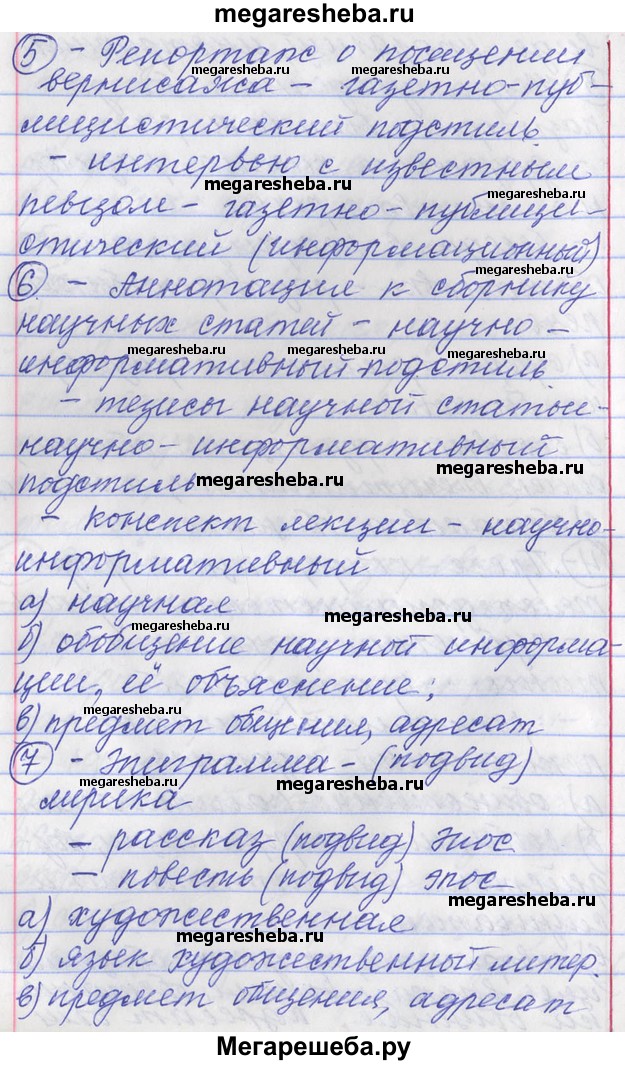 megaresheba.ru
5 - Репортаж о посещении
megaresheba.ru megaresheba.ru megaresheba.ru
вернисажа - газетно-пуб-
лицистический подстиль
megaresheba.ru
- интервью с известным
megaresheba.ru
певцом - газетно - публици-
megaresheba.ru
стический (информационный)
megaresheba.ru megaresheba.ru
6 - Аннотация к сборнику
научных статей - научно -
megaresheba.ru megaresheba.ru megaresheba.ru
информативный подстиль.
- тезисы научной статьи -
научно - информативный
megaresheba.ru
подстиль megaresheba.ru
- конспект лекции - научно-
информативный
а) научная
megaresheba.ru megaresheba.ru
б) обобщение научной информа-
ции, её объяснение;
megaresheba.ru
в) предмет общения, адресат
7 - Эпиграмма - (подвид)
megaresheba.ru megaresheba.ru
лирика
- рассказ (подвид) эпос
megaresheba.ru
- повесть (подвид) эпос
а) художественная
megaresheba.ru
б) язык художественный литер.
megaresheba.ru megaresheba.ru
в) предмет общения, адресат
Мегарешеба.ру